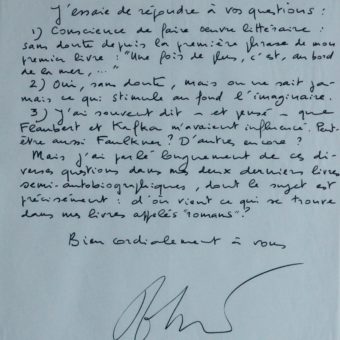 J'essaie de répondre à vos questions :
1) Conscience de faire œuvre littéraire :
sans doute depuis la première phrase de mon
premier livre : "Une fois de plus, c'est, au bord
de la mer, ..."
2) Oui, sans doute, mais on ne sait ja-
mais ce qui stimule au fond l'imaginaire.
3) J'ai souvent dit – et pensé – que
Flaubert et Kafka m'avaient influencé. Peut-
être aussi Faulkner ? D'autres encore ?
Mais j'ai parlé longuement de ces di-
verses questions dans mes deux derniers livres
semi-autobiographiques, dont le sujet est
précisément : d'où vient ce qui se trouve
dans mes livres appelés "romans" ?
Bien cordialement à vous